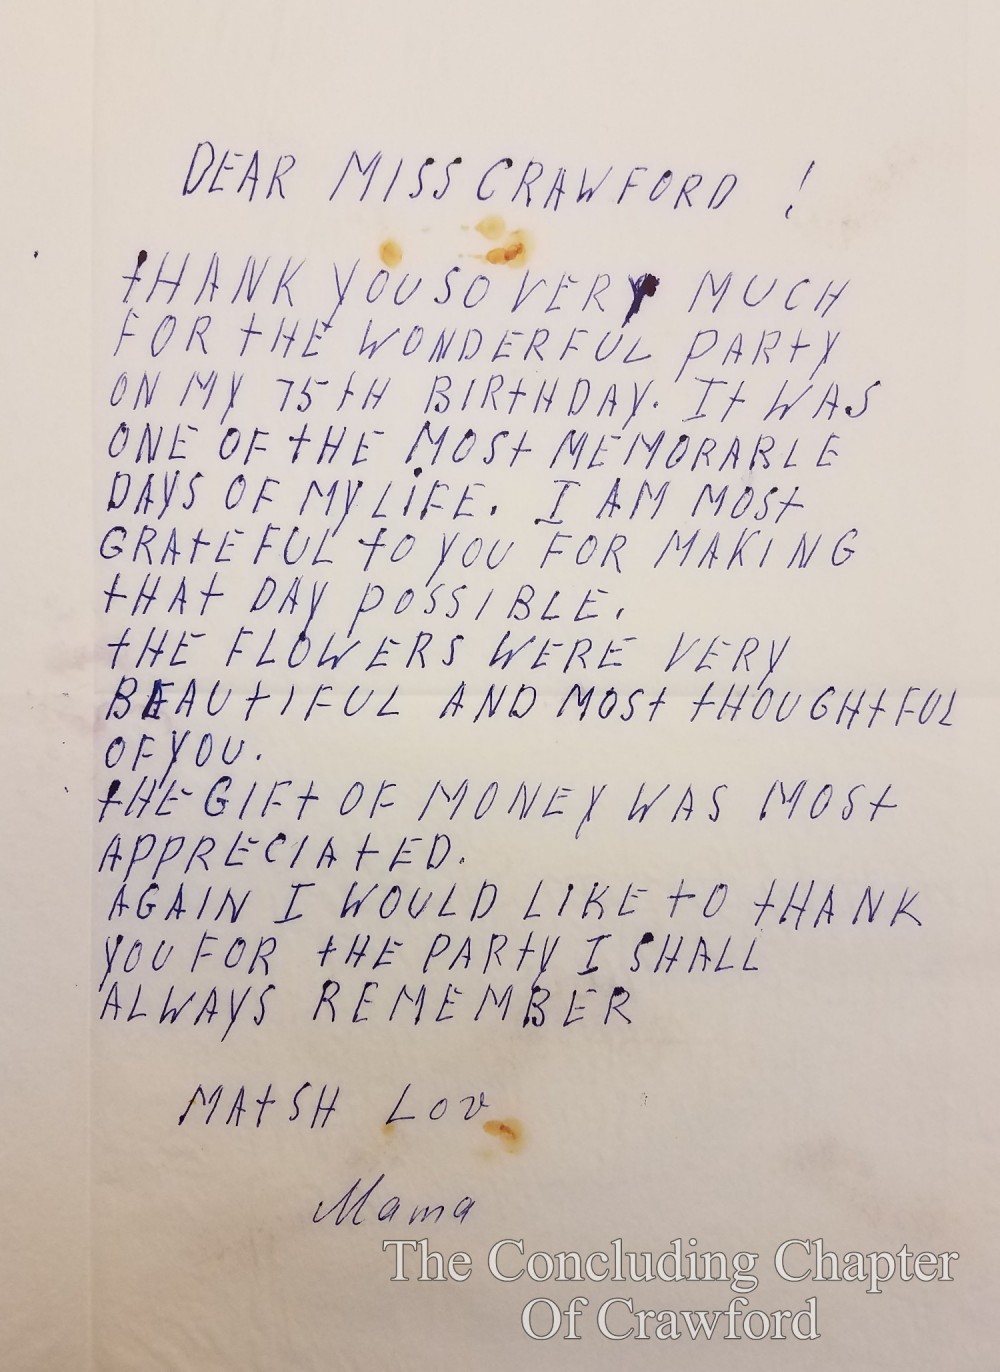 DEAR MISS CRAWFORD !
tHANK YOU SO VERY MUCH
FOR tHE WONDERFUL PARtY
ON MY 75tH BIRtHDAY. It WAS
ONE OF tHE MOSt MEMORABLE
DAYS OF MY LiFE. I AM MOSt
GRAtEFUL tO YOU FOR MAKING
tHAt DAY POSSIBLE.
tHE FLOWERS WERE VERY
BEAUtIFUL AND MOSt tHOUGHtFUL
OF YOU.
tHE GIFt OF MONEY WAS MOSt
APPRECIAtED.
AGAIN I WOULD LIKE tO tHANK
YOU FOR tHE PARtY I SHALL
ALWAYS REMEMBER
MAtSH LOv
Mama
The Concluding Chapter
Of Crawford